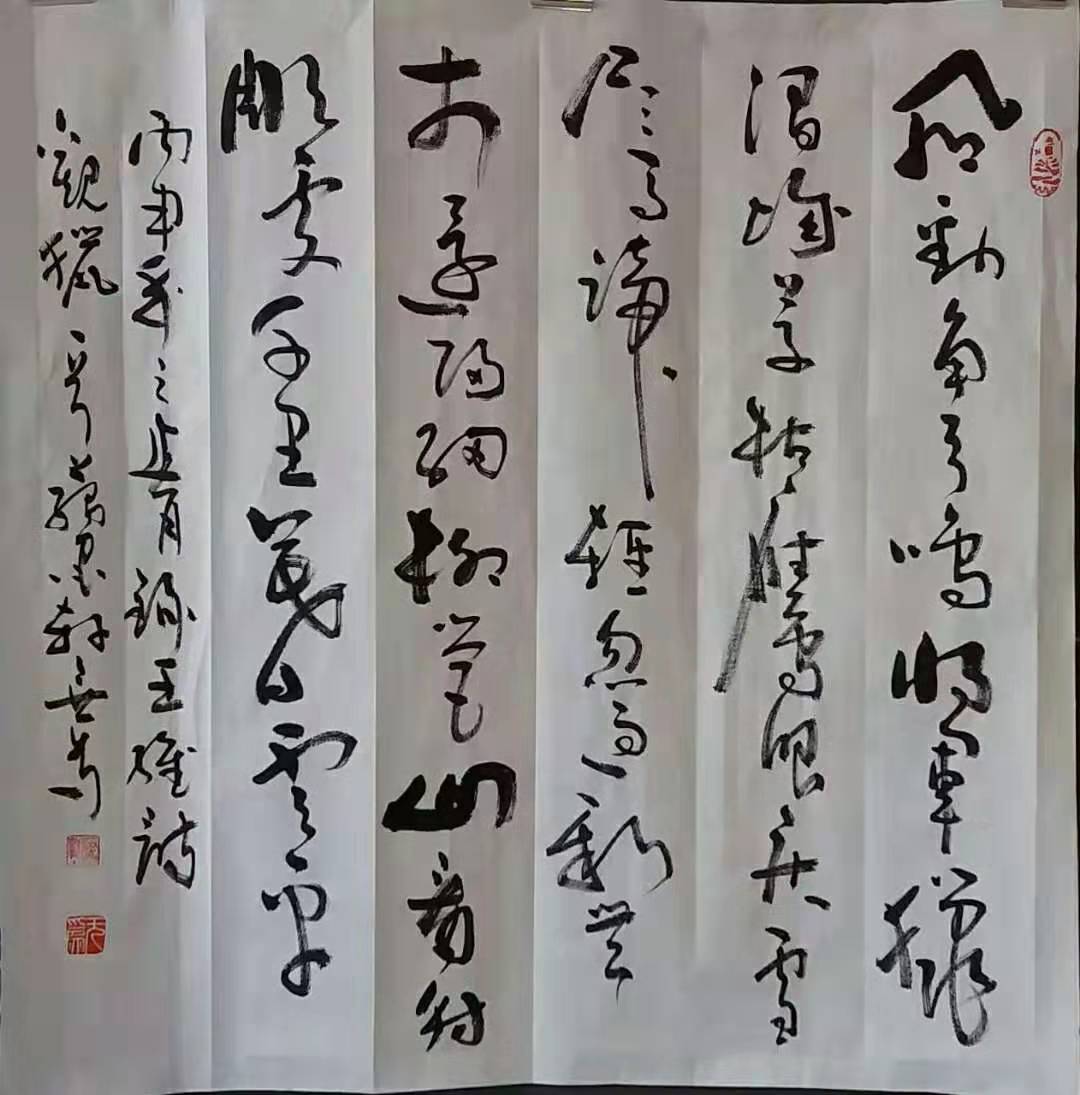 風勁角弓鳴將軍獵
渭城草枯鷹眼疾雪
盡馬蹄輕忽過新豐
市還歸細柳營回看射
雕處千里暮雲平
丙申 之 月錄王維詩
觀獵一首 墨軒